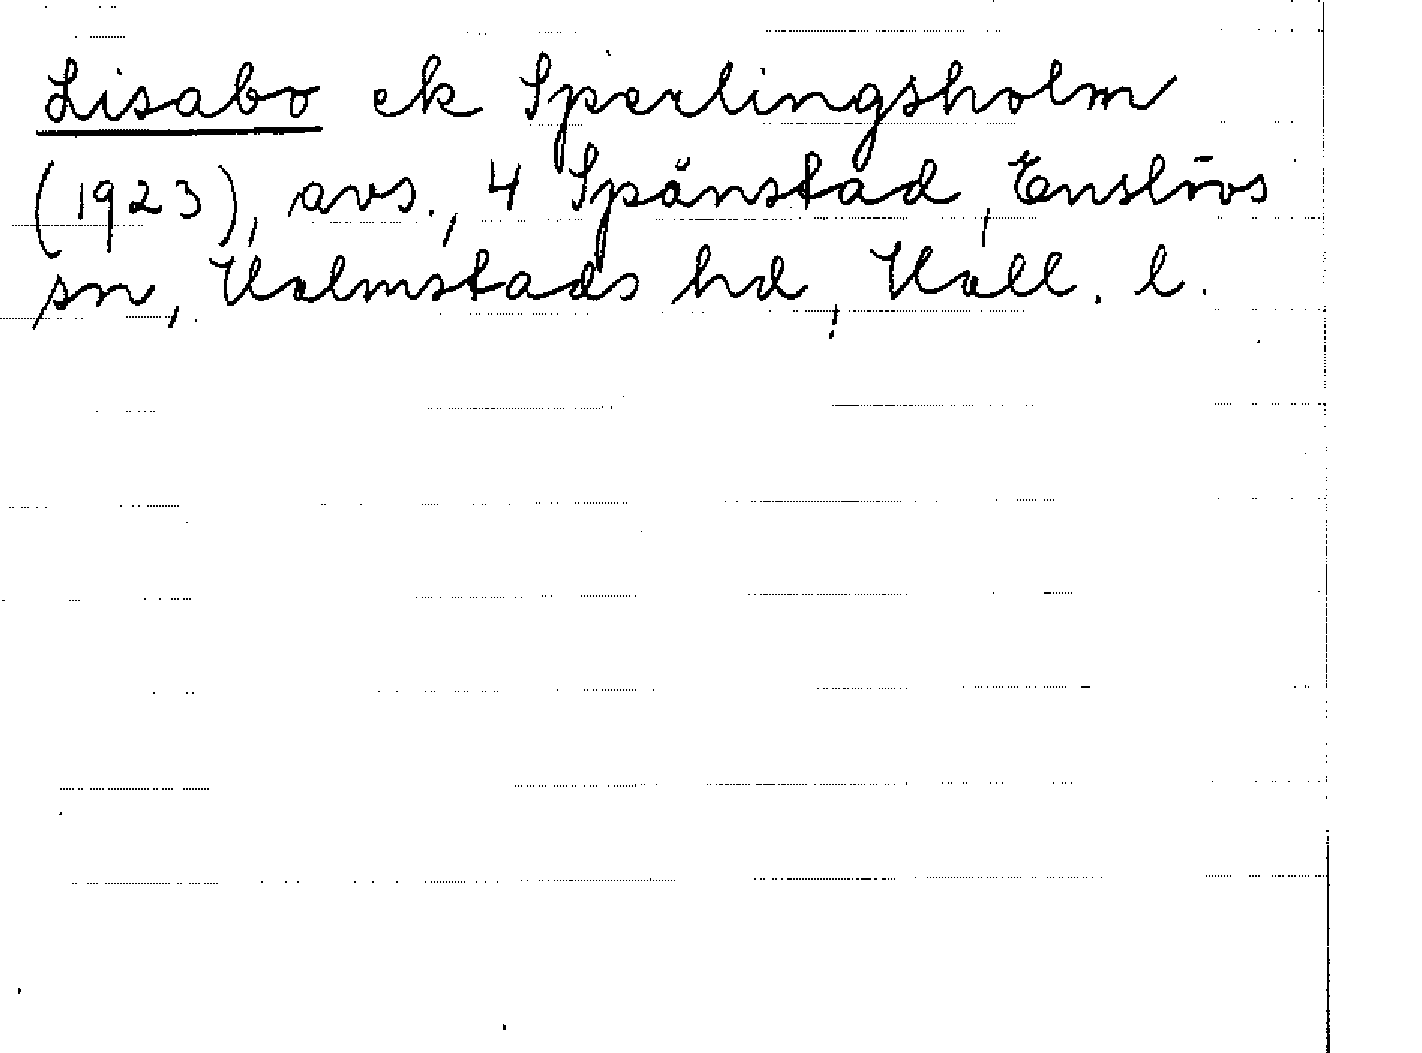 Lisabo ek Sperlingsholm
(1923), avs., 4 Spånstad, Enslövs
sn, Halmstads hd, Hall. l.